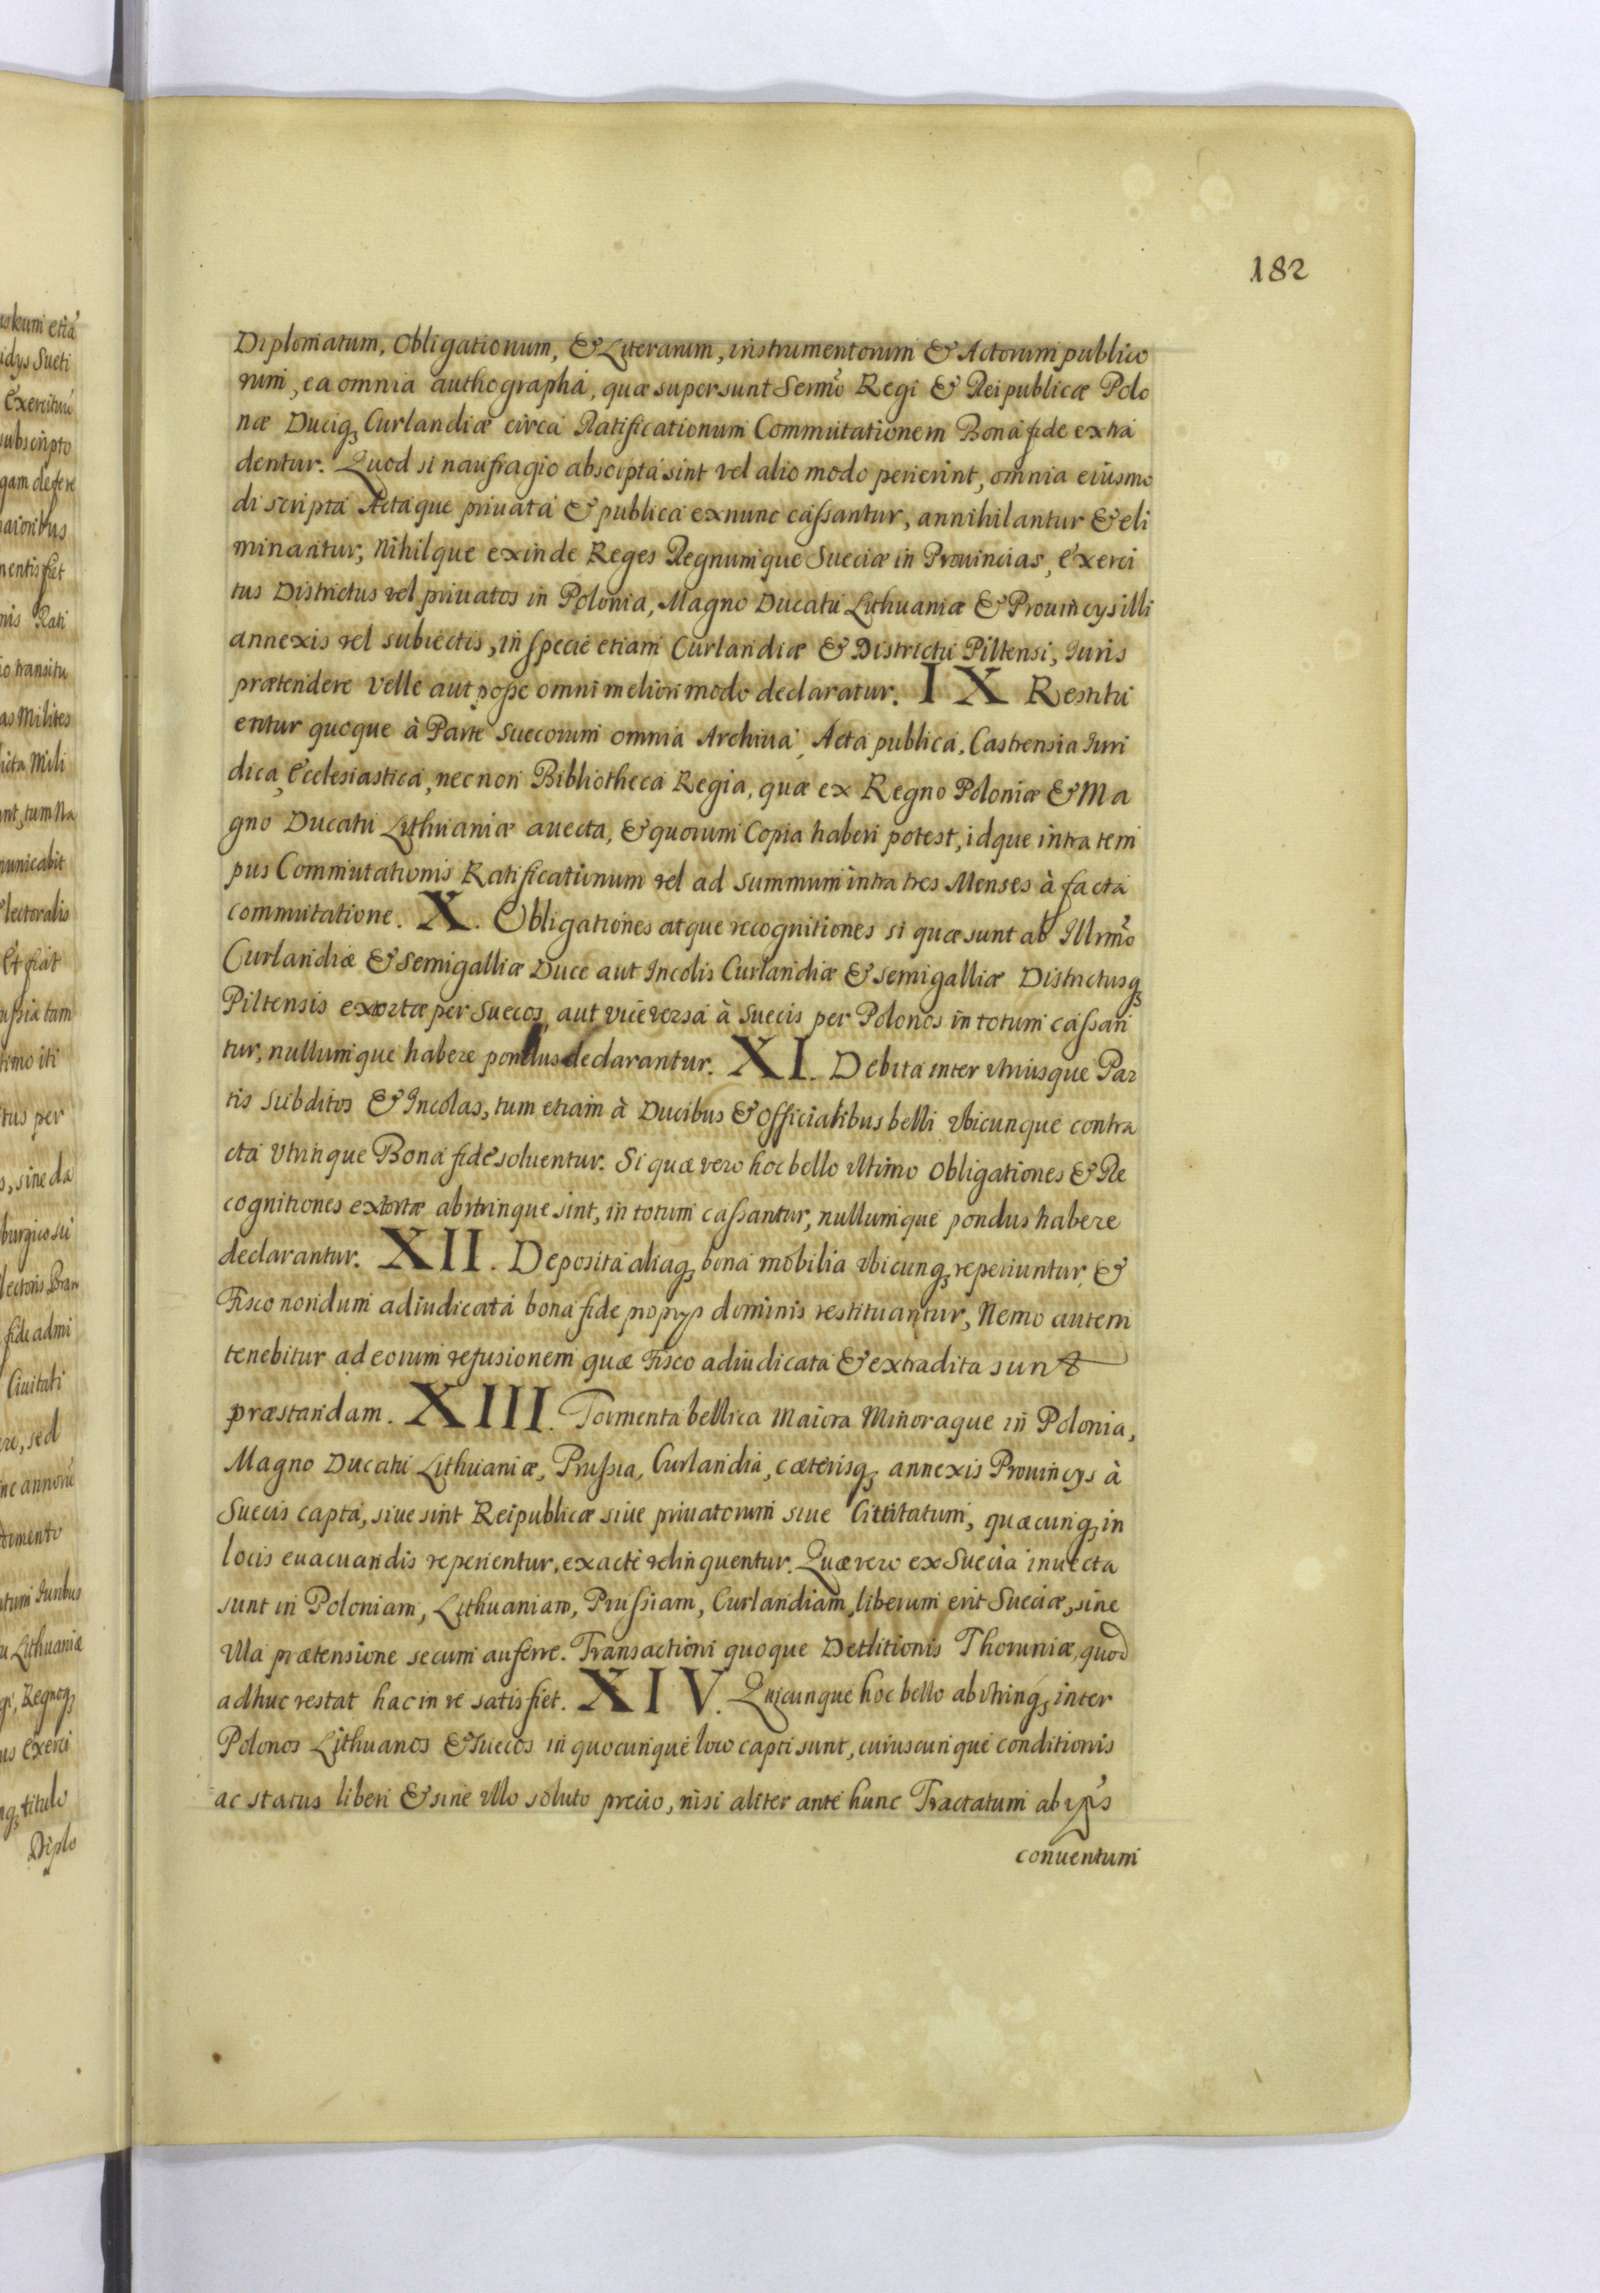 182
Diplomatum, Obligationum, & Literarum, instrumentorum & Actorum publico
rum, ea omnia authographa, quæ supersunt Sermo Regi & Reipublicæ Polo
næ Duciq; Curlandiæ circa Ratificationum Commutationem Bona fide extra
dentur. Quod si naufragio abscipta sint vel alio modo perierint, omnia eiusmo
di scripta Actaque priuata & publica ex nunc cassantur, annihilantur & eli
minantur; Nihilque exinde Reges Regnumque Sueciæ in Prouincias, Exerci
tus Districtus vel priuatos in Polonia, Magno Ducatu Lithuaniæ & Prouincys illi
annexis vel subiectis, in specie etiam Curlandiæ & Districtu Piltensi, Iuris
prætendere velle aut posse omni meliori modo declaratur. IX Restitu
entur quoque à Parte Suecorum omnia Archiua, Acta publica, Castrensia Iuri
dica, Ecclesiastica, nec non Bibliotheca Regia, quæ ex Regno Poloniæ & Ma
gno Ducatu Lithuaniæ auecta, & quorum Copia haberi potest, idque intra tem
pus Commutationis Ratificationum vel ad summum intra tres Menses à facta
commutatione. X. Obligationes atque recognitiones si quæ sunt ab Illrmo
Curlandiæ & Semigalliæ Duce aut Incolis Curlandiæ & Semigalliæ Districtusq;
Piltensis extortæ per Suecos, aut vice versa à Suecis per Polonos in totum cassan
tur, nullumque habere pondus declarantur. XI. Debita inter vtriusque Par
tis Subditos & Incolas, tum etiam à Ducibus & Officialibus belli vbicunque contra
cta vtrinque Bona fide soluentur. Si quæ vero hoc bello vltimo Obligationes & Re
cognitiones extortæ abvtrinque sint, in totum cassantur, nullumque pondus habere
declarantur. XII. Deposita aliaq; bona mobilia vbicunq; reperiuntur, &
Fisco nondum adiudicata bona fide proprys dominis restituantur, Nemo autem
tenebitur ad eorum refusionem quæ Fisco adiudicata & extradita sunt
præstandam. XIII. Tormenta bellica Maiora Minoraque in Polonia,
Magno Ducatu Lithuaniæ, Prussia, Curlandia, cæterisq; annexis Prouincys à
Suecis capta, siue sint Reipublicæ siue priuatorum siue Ciuitatum, quæcunq; in
locis euacuandis reperientur, exacte relinquentur. Quæ vero ex Suecia inuecta
sunt in Poloniam, Lithuaniam, Prussiam, Curlandiam, liberum erit Sueciæ, sine
vlla prætensione secum auferre. Transactioni quoque Deditionis Thoruniæ, quod
adhuc restat hac in re satisfiet. XIV. Quicunque hoc bello abvtrinq; inter
Polonos Lithuanos & Suecos in quocunque loco capti sunt, cuiuscunque conditionis
ac status liberi & sine vllo soluto precio, nisi aliter ante hunc Tractatum ab ipsis
conuentum
idys Sueti
Exercituum
subscripto
Rati
transitu
Milites
Mili
Electoralis
sine da
fide admi
Ciuitati
sed
Iuribus
Lithuaniæ
Regnoq;
Exerci
titulo
Diplo